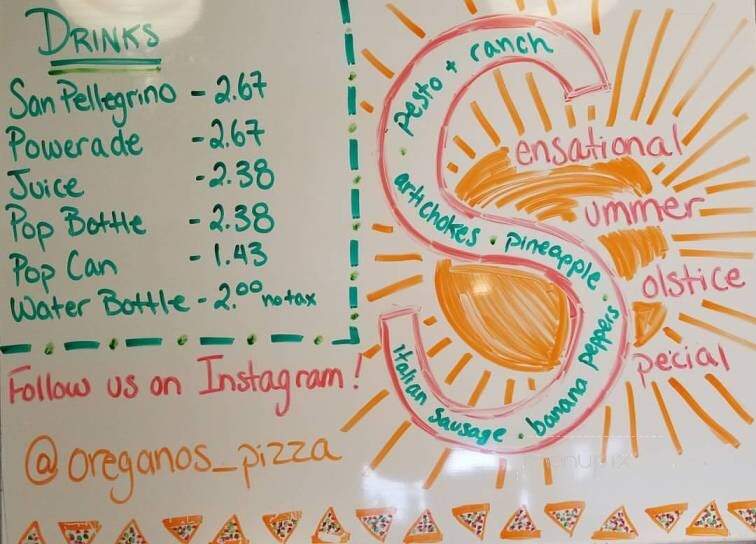 DRINKS
San Pellegrino - 2.67
Powerade - 2.67
Juice - 2.38
Pop Bottle - 2.38
Pop Can - 1.43
Water Bottle - 2.00 no tax
Follow us on Instagram!
@oreganos_pizza
S
ensational
ummer
olstice
pecial
pesto + ranch
· artichokes · pineapple ·
italian sausage · banana peppers